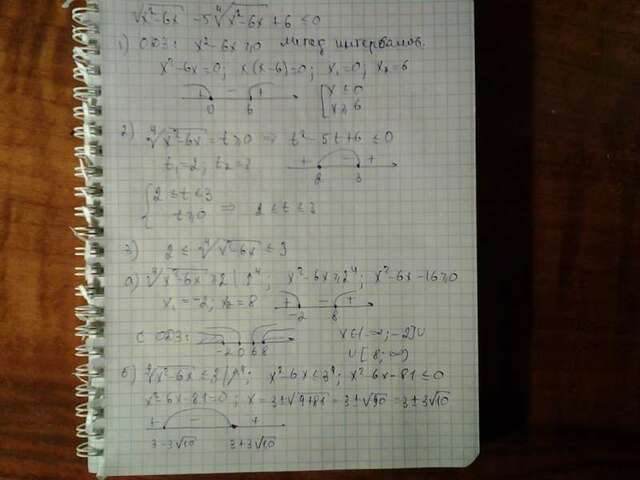 √x²-6x -5⁴√x²-6x +6 ≤ 0
1) ОДЗ: x²-6x ≥ 0 Метод интервалов.
x²-6x=0; x(x-6)=0; x₁=0, x₂=6
+ - +
0 6
[x ≤ 0
x ≥ 6
2) ⁴√x²-6x = t ≥ 0 ⇒ t²-5t+6 ≤ 0
t₁=2, t₂=3
+ - +
2 3
{2 ≤ t ≤ 3
t ≥ 0 ⇒ 2 ≤ t ≤ 3
3) 2 ≤ ⁴√x²-6x ≤ 3
а) ⁴√x²-6x ≥ 2 |↑⁴; x²-6x ≥ 2⁴; x²-6x-16 ≥ 0
x₁=-2; x₂=8
+ - +
-2 8
с ОДЗ:
-2 0 6 8
x∈(-∞; -2]∪
∪[8; ∞)
б) ⁴√x²-6x ≤ 3 |↑⁴; x²-6x ≤ 3⁴; x²-6x-81 ≤ 0
x²-6x-81=0; x=3±√9+81=3±√90=3±3√10
+ - +
3-3√10 3+3√10